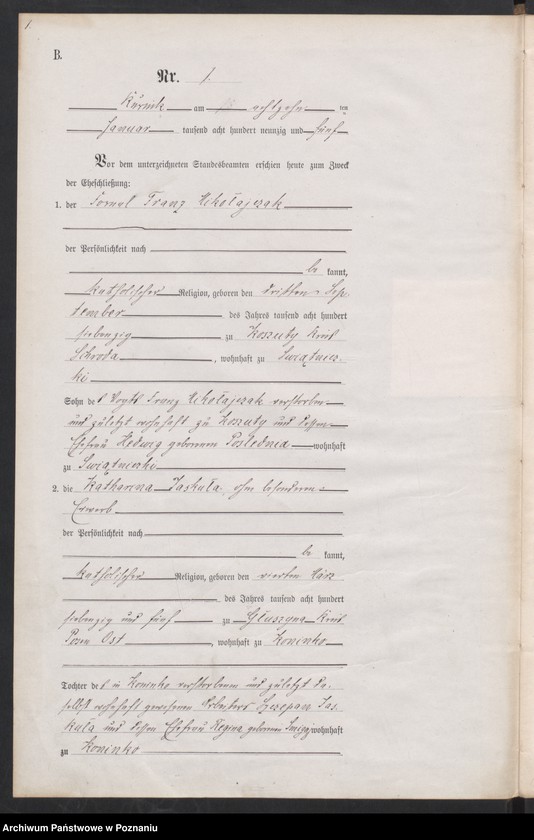 1.
B.
Nr. 1.
Kurnik am achtzehn ten
Januar tausend acht hundert neunzig und fünf
Vor dem unterzeichneten Standesbeamten erschien heute zum Zweck
der Eheschließung:
1. der Franz Mikołajczak
der Persönlichkeit nach
be kannt,
katholischer Religion, geboren den dritten Sep
tember des Jahres tausend acht hundert
siebenzig zu Koszuty Kreis
Schroda, wohnhaft zu Swiątnicz
ki
Sohn des Vogts Franz Mikołajczak verstorben
und zuletzt wohnhaft zu Koszuty und dessen
Ehefrau Hedwig geborenen Poslednia wohnhaft
zu Swiątniczki
2. die Katharina Jaskuła, ohne besonderen
Erwerb
der Persönlichkeit nach
be kannt,
katholischer Religion, geboren den vierten März
des Jahres tausend acht hundert
siebenzig und fünf zu Głuszyna Kreis
Posen Ost, wohnhaft zu Koninko
Tochter des in Koninko verstorbenen und zuletzt da-
selbst wohnhaft gewesenen Arbeiters Szczepan Jas
kuła und dessen Ehefrau Regina geborenen wohnhaft
zu Koninko
Archiwum Państwowe w Poznaniu